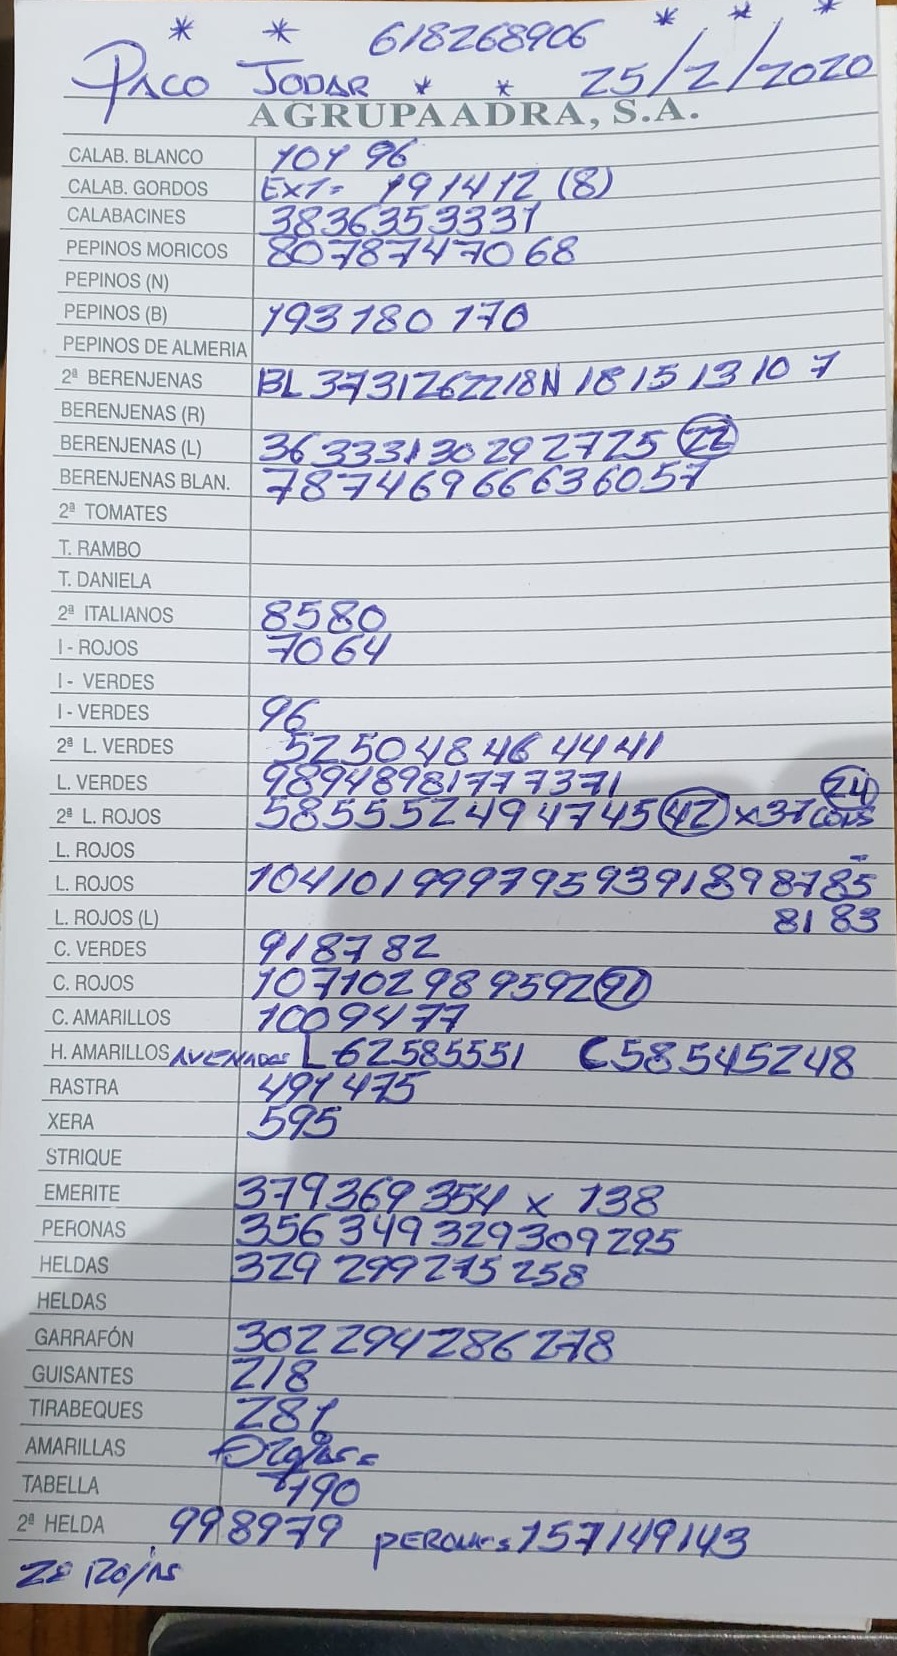 * * 618268906 * * *
PACO JODAR * * 25/2/2020
AGRUPAADRA, S.A.
CALAB. BLANCO 101 96
CALAB. GORDOS EXT= 191412 (8)
CALABACINES 3836353331
PEPINOS MORICOS 8078747068
PEPINOS (N)
PEPINOS (B) 193 180 170
PEPINOS DE ALMERIA
2ª BERENJENAS BL 3731262218 N 18 15 13 10 7
BERENJENAS (R)
BERENJENAS (L) 36 33 31 30 29 27 25 22
BERENJENAS BLAN. 78 74 69 66 63 60 57
2ª TOMATES
T. RAMBO
T. DANIELA
2ª ITALIANOS 8580
I - ROJOS 7064
I - VERDES
I - VERDES 96
2ª L. VERDES 52 50 48 46 44 41
L. VERDES 98 94 89 81 77 73 71 24
2ª L. ROJOS 58 55 52 49 47 45 42 x 37
L. ROJOS
L. ROJOS 104 101 99 97 95 93 91 89 87 85
L. ROJOS (L) 81 83
C. VERDES 91 87 82
C. ROJOS 107 102 98 95 92 91
C. AMARILLOS 100 94 77
H. AMARILLOS L 62 58 55 51 C 58 54 52 48
RASTRA 491 475
XERA 595
STRIQUE
EMERITE 379 369 354 x 138
PERONAS 356 349 329 309 295
HELDAS 329 299 275 258
HELDAS
GARRAFÓN 302 294 286 278
GUISANTES 218
TIRABEQUES 281
AMARILLAS
TABELLA 190
2ª HELDA 99 89 79 157 149 143